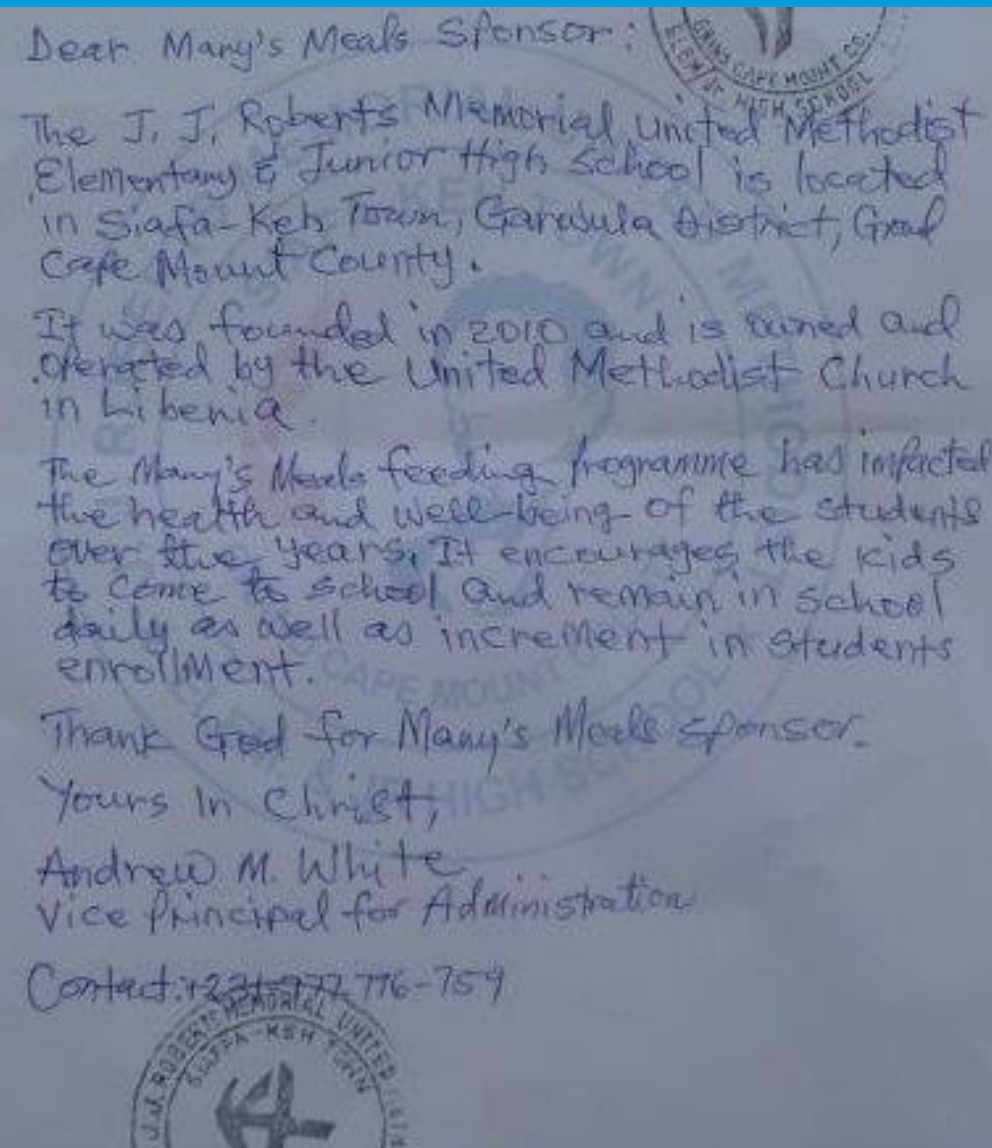 Dear Mary's Meals Sponsor:
GRAND CAPE MOUNT CO.
ELEM/Jr HIGH SCHOOL
The J. J. Roberts Memorial United Methodist
Elementary & Junior High School is located
in Siafa-Keh Town, Garwula District, Grand
Cape Mount County.
It was founded in 2010 and is owned and
operated by the United Methodist Church
in Liberia.
The Mary's Meals feeding programme has impacted
the health and well-being of the students
over the years. It encourages the kids
to come to school and remain in school
daily as well as increment in students
enrollment.
Thank God for Mary's Meals sponsor.
Yours In Christ,
Andrew M. White
Vice Principal for Administration
Contact: +231-777-776-759
J.J. ROBERTS MEMORIAL UNITED
SIAFFA-KEH TOWN